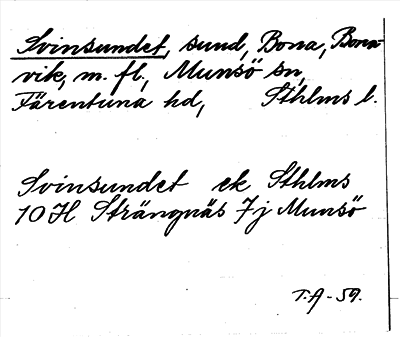 Svinsundet, sund, Bona, Bona-
vik, m. fl., Munsö sn,
Färentuna hd, Sthlms l.
Svinsundet ek Sthlms
10H Strängnäs 7j Munsö
T.A-59.